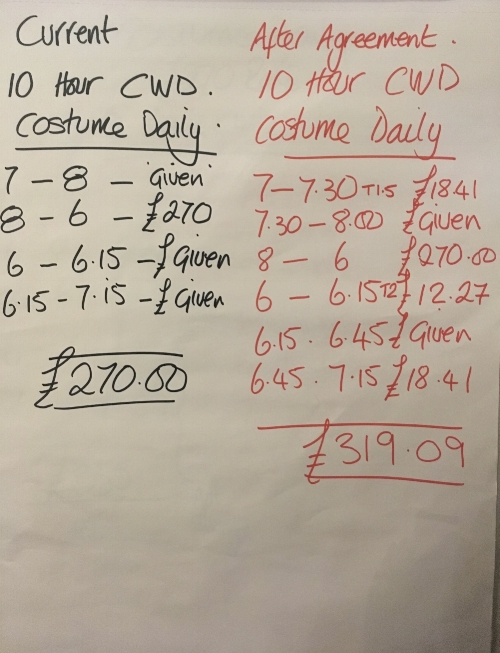 Current
10 Hour CWD.
Costume Daily.
7 - 8 - Given
8 - 6 - £270
6 - 6.15 - £Given
6.15 - 7.15 - £Given
£270.00
After Agreement.
10 Hour CWD
Costume Daily
7 - 7.30 T1.5 £18.41
7.30 - 8.00 £Given
8 - 6 £270.00
6 - 6.15 T2 £12.27
6.15 . 6.45 £Given
6.45 . 7.15 £18.41
£319.09